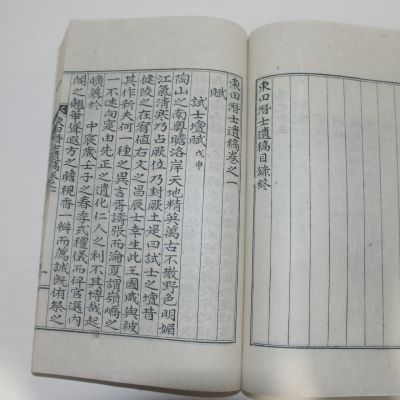 東田潛士遺稿目錄終
東田潛士遺稿卷之一
賦
試士壇賦 戊申
陶山之南粵瞻洛岸天地精英萬古不散野色明媚
江氣清寒乃占厥位乃封厥土是曰試士之壇昔
健陵之在宥値右文之昌辰士幸生此王國咸與被
其作新夫何一種之異言胥譸張而淪夏謂嶺嶠之
一不迷向寔由先正之遺化仁人之利不其博哉起
曠於 中宸歲壬子之春季式禮儀而伻官選內
閣之翹華聳遐方之瞻視香一瓣而薦誠旣侑祭之
東田潛士遺稿卷之一